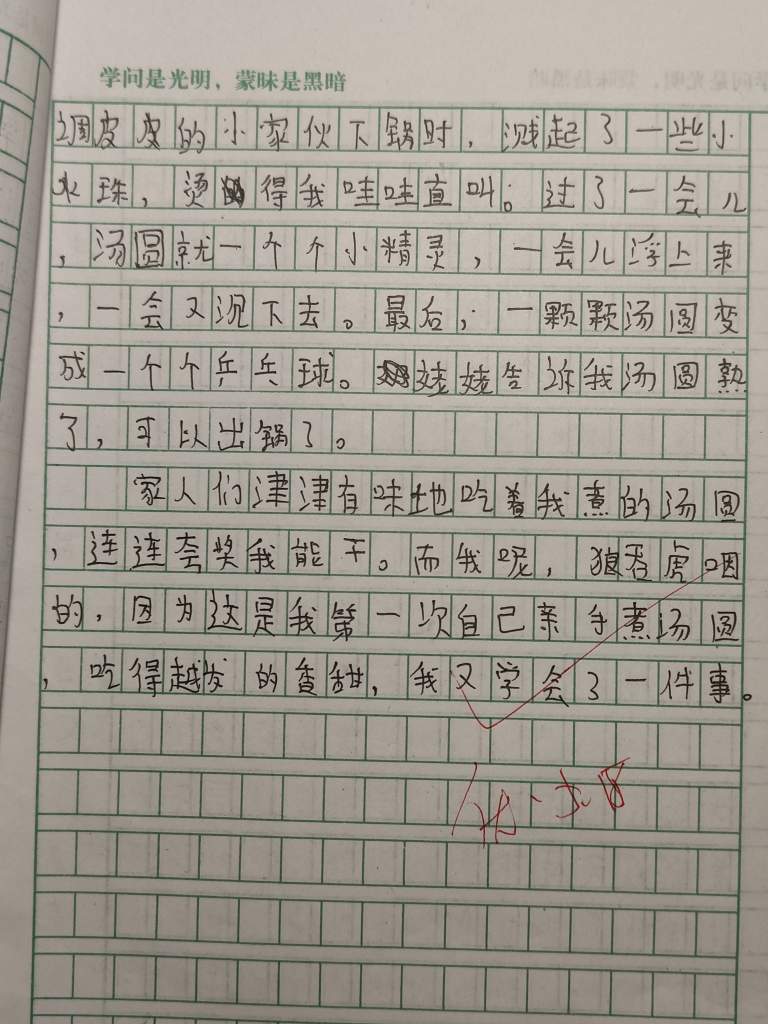 学问是光明，蒙昧是黑暗
调皮皮的小家伙下锅时，溅起了一些小
水珠，烫得我哇哇直叫。过了一会儿
，汤圆就一个个小精灵，一会儿浮上来
，一会又沉下去。最后，一颗颗汤圆变
成一个个乒乓球。姥姥告诉我汤圆熟
了，可以出锅了。
家人们津津有味地吃着我煮的汤圆
，连连夸奖我能干。而我呢，狼吞虎咽
的，因为这是我第一次自己亲手煮汤圆
，吃得越发的香甜，我又学会了一件事。